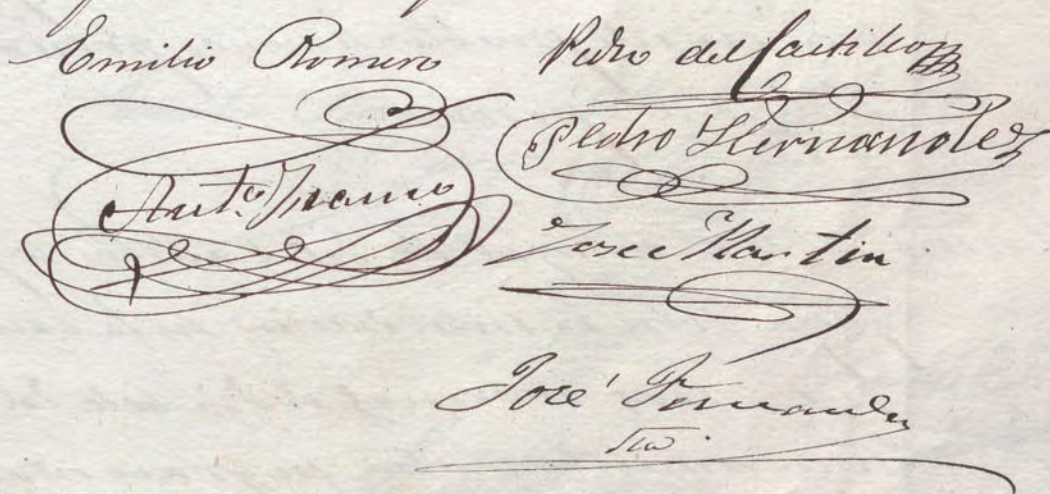 Emilio Romero
Pedro del Castillo
Ant.º Franco
Pedro Hernandez
Jose Martin
José Fernandez
Srio.